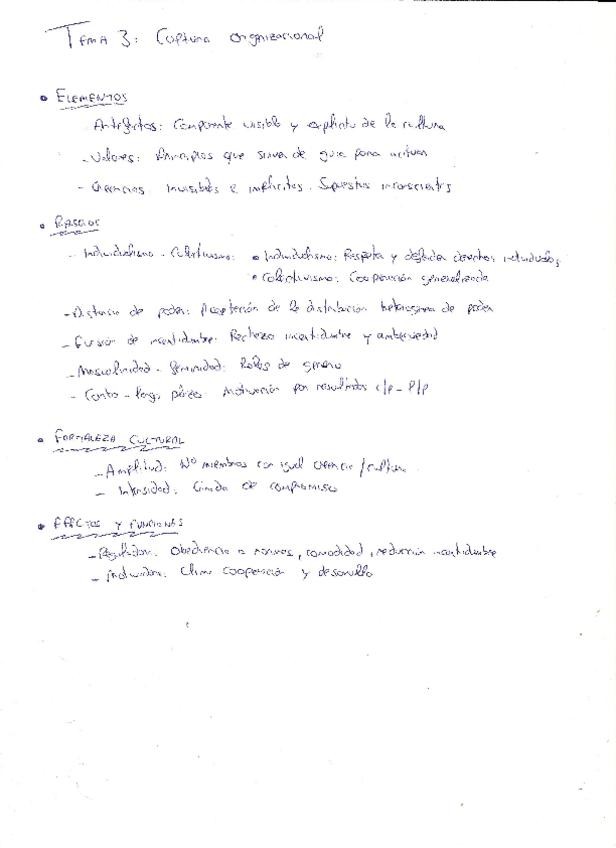 TEMA 3: Cultura organizacional
• ELEMENTOS
Artefactos: Componente visible y explicito de la cultura
- Valores: Principios que sirven de guia para
- Creencias Invisibles e implícitas. Supuestos inconscientes
•
- Individualismo - Colectivismo: • Individualismo: Respeta y derechos individuales
• Colectivismo: Cooperación
- Distancia de poder: Aceptación de la distribucion de poder
- de incertidumbre: Rechazo incertidumbre y ambiguedad
- Masculinidad - feminidad: Roles de genero
- Corto - largo plazo: Motivación por resultados c/p - l/p
• FORTALEZA CULTURAL
- Amplitud: Nº miembros con igual creencia/cultura
- Intensidad. Grado de compromiso
• EFECTOS Y FUNCIONES
- Reguladora. Obediencia a normas, comodidad, reducción incertidumbre
- Motivadora. Clima cooperación y desarrollo